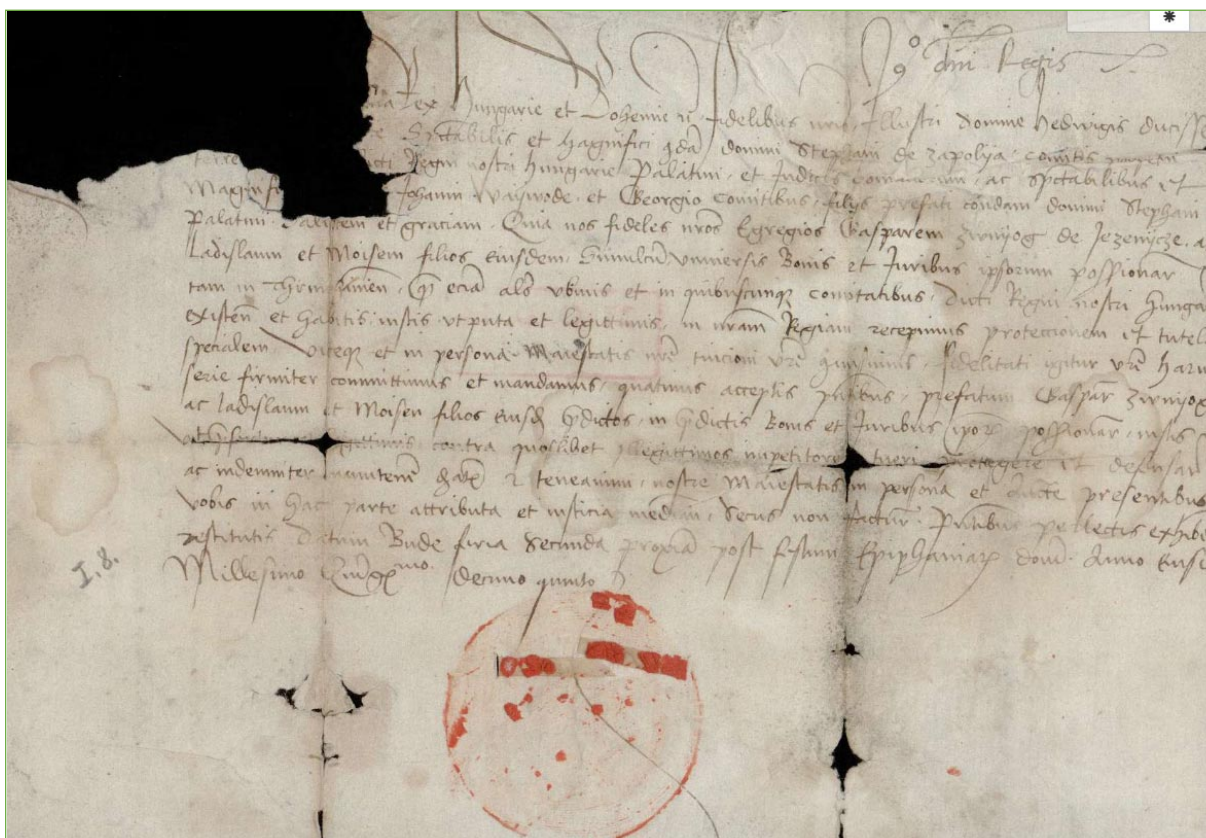 dni Regis
Rex Hungarie et Bohemie fidelibus nris Illustri domine Hedwigis duci
Spctabilis et Magnifici qda domini Stephani de Zapolya comitis
terre Regni nostri Hungarie Palatini et Judicis ac Spctabilibus et
Magnifi Johanni Waywode et Georgio Comitibus filys prefati condam domini Stephani
Palatini Salutem et graciam Quia nos fideles nros Egregios Gasparem de Jezenycze
Ladislaum et Moisem filios Eiusdem Simulcu Universis Bonis et Juribus ipsorum possionar
tam in qm ecia als Ubivis et in quibuscunq Comitatibus dicti Regni nostri Hunga
existen et habitis iustis utputa et legittimis in nram Regiam recepimus proteccionem et tutel
specialem Viceque et in persona Maiestatis nre tuicioni vre fidelitati igitur vre Haru
serie firmiter committimus et mandamus quatinus acceptis pntibus prefatum Gaspar
ac Ladislaum et Moisen filios Eiusd pdictos in pdictis Bonis et Juribus ipor possionar iustis
contra quoslibet illegittimos impetitores tueri protegere et defensare
ac indemniter manutenere et teneamini nostre Maiestatis in persona et aucte presentibus
vobis in hac parte attributa et iusticia median Secus non factur Pntibus perlectis exhibe
restitutis Datum Bude feria Secunda proxia post festum Epiphaniar domi Anno Eiusd
Millesimo Quigemo decimo quinto
I. 8.